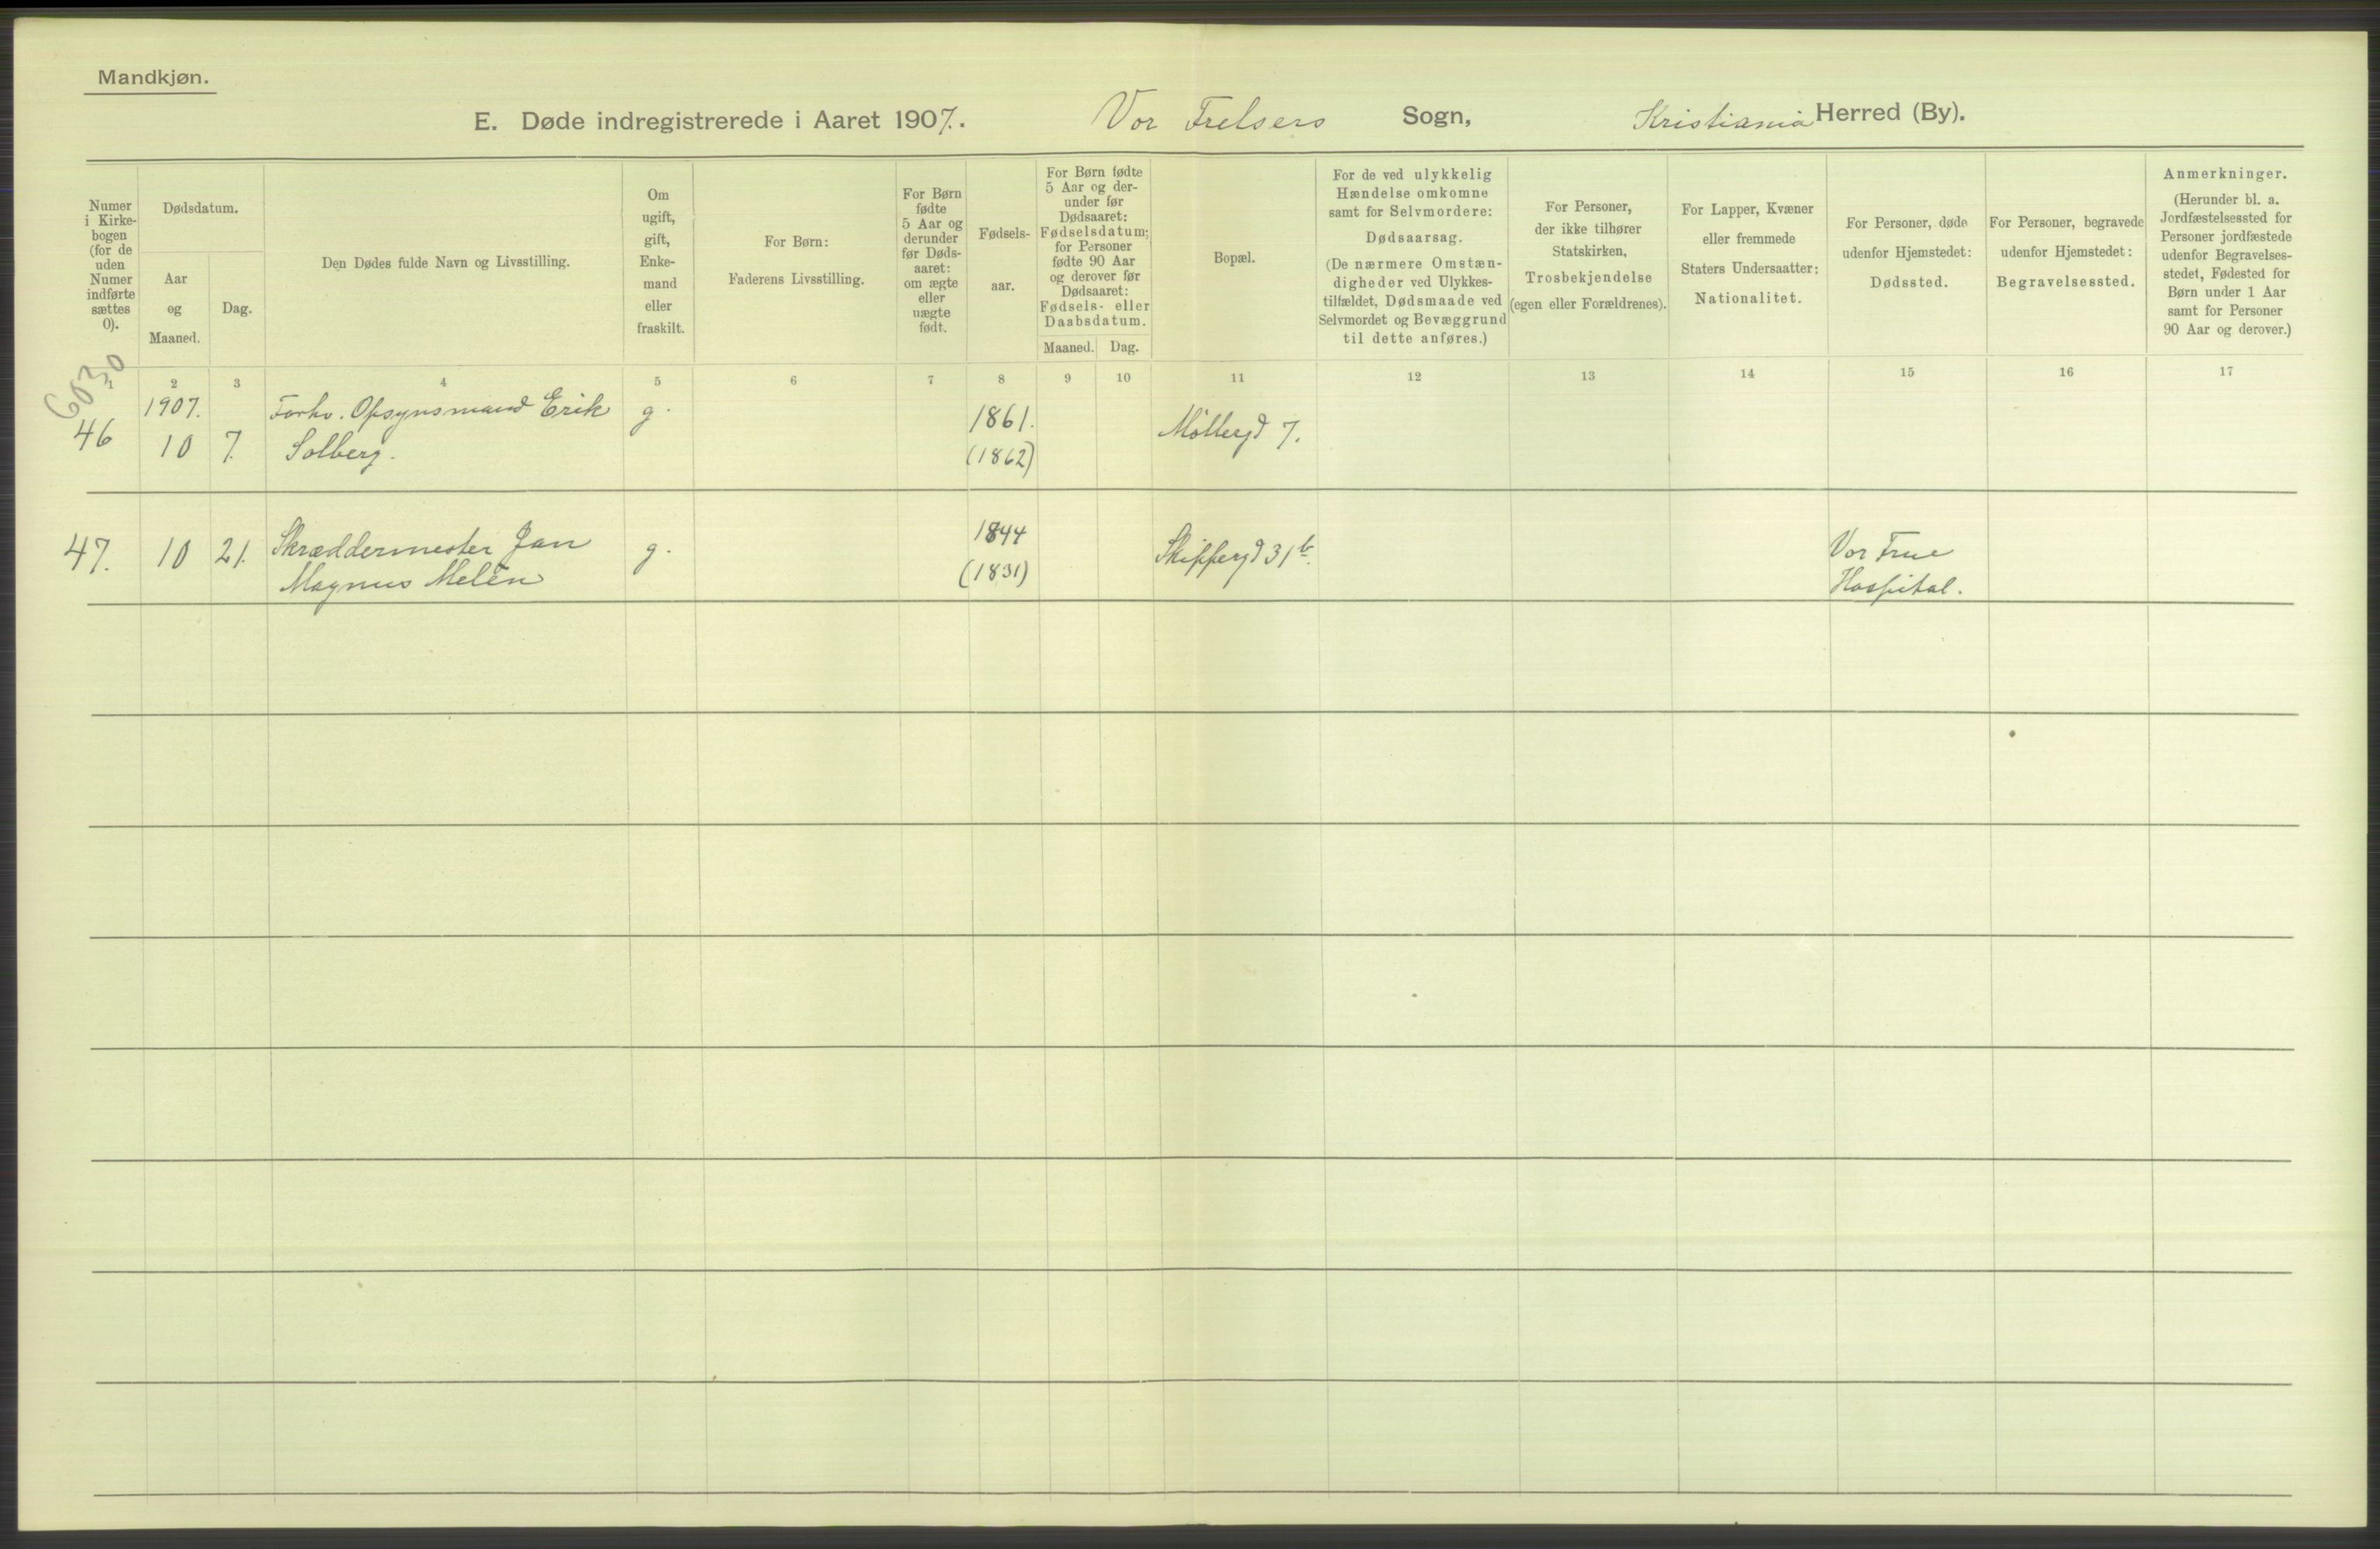 Mandkjøn.
E. Døde indregistrerede i Aaret 1907. Vor Frelsers Sogn, Kristiania Herred (By).
Numer
i Kirke-
bogen
(for de
uden
Numer
indførte
sættes
0).
Dødsdatum.
Aar
og
Maaned.
Dag.
Den Dødes fulde Navn og Livsstilling.
Om
ugift,
gift,
Enke-
mand
eller
fraskilt.
For Børn:
Faderens Livsstilling.
For Børn
fødte
5 Aar og
derunder
før Døds-
aaret:
om ægte
eller
uægte
født.
Fødsels-
aar.
For Børn fødte
5 Aar og der-
under før
Dødsaaret:
Fødselsdatum;
for Personer
fødte 90 Aar
og derover før
Dødsaaret:
Fødsels- eller
Daabsdatum.
Maaned. Dag.
Bopæl.
For de ved ulykkelig
Hændelse omkomne
samt for Selvmordere:
Dødsaarsag.
(De nærmere Omstæn-
digheder ved Ulykkes-
tilfældet, Dødsmaade ved
Selvmordet og Bevæggrund
til dette anføres.)
For Personer,
der ikke tilhører
Statskirken,
Trosbekjendelse
(egen eller Forældrenes).
For Lapper, Kvæner
eller fremmede
Staters Undersaatter:
Nationalitet.
For Personer, døde
udenfor Hjemstedet:
Dødssted.
For Personer, begravede
udenfor Hjemstedet:
Begravelsessted.
Anmerkninger.
(Herunder bl. a.
Jordfæstelsessted for
Personer jordfæstede
udenfor Begravelses-
stedet, Fødested for
Børn under 1 Aar
samt for Personer
90 Aar og derover.)
1 2 3 4 5 6 7 8 9 10 11 12 13 14 15 16 17
6030
46
1907.
10 7.
Forhv. Opsynsmand Erik
Solberg.
g.
1861.
(1862)
Møllergd 7.
47. 10 21.
Skræddermester Jan
Magnus Melén
g.
1844
(1831)
Skippergd 31 b.
Vor Frue
Hospital.